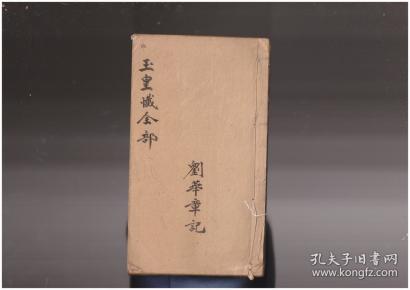 玉皇懺全部
劉華章記
孔夫子旧书网
www.kongfz.com